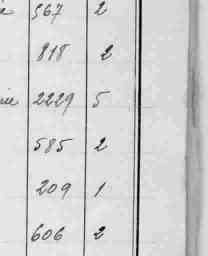 567 2
818 2
2229 5
585 2
209 1
606 2